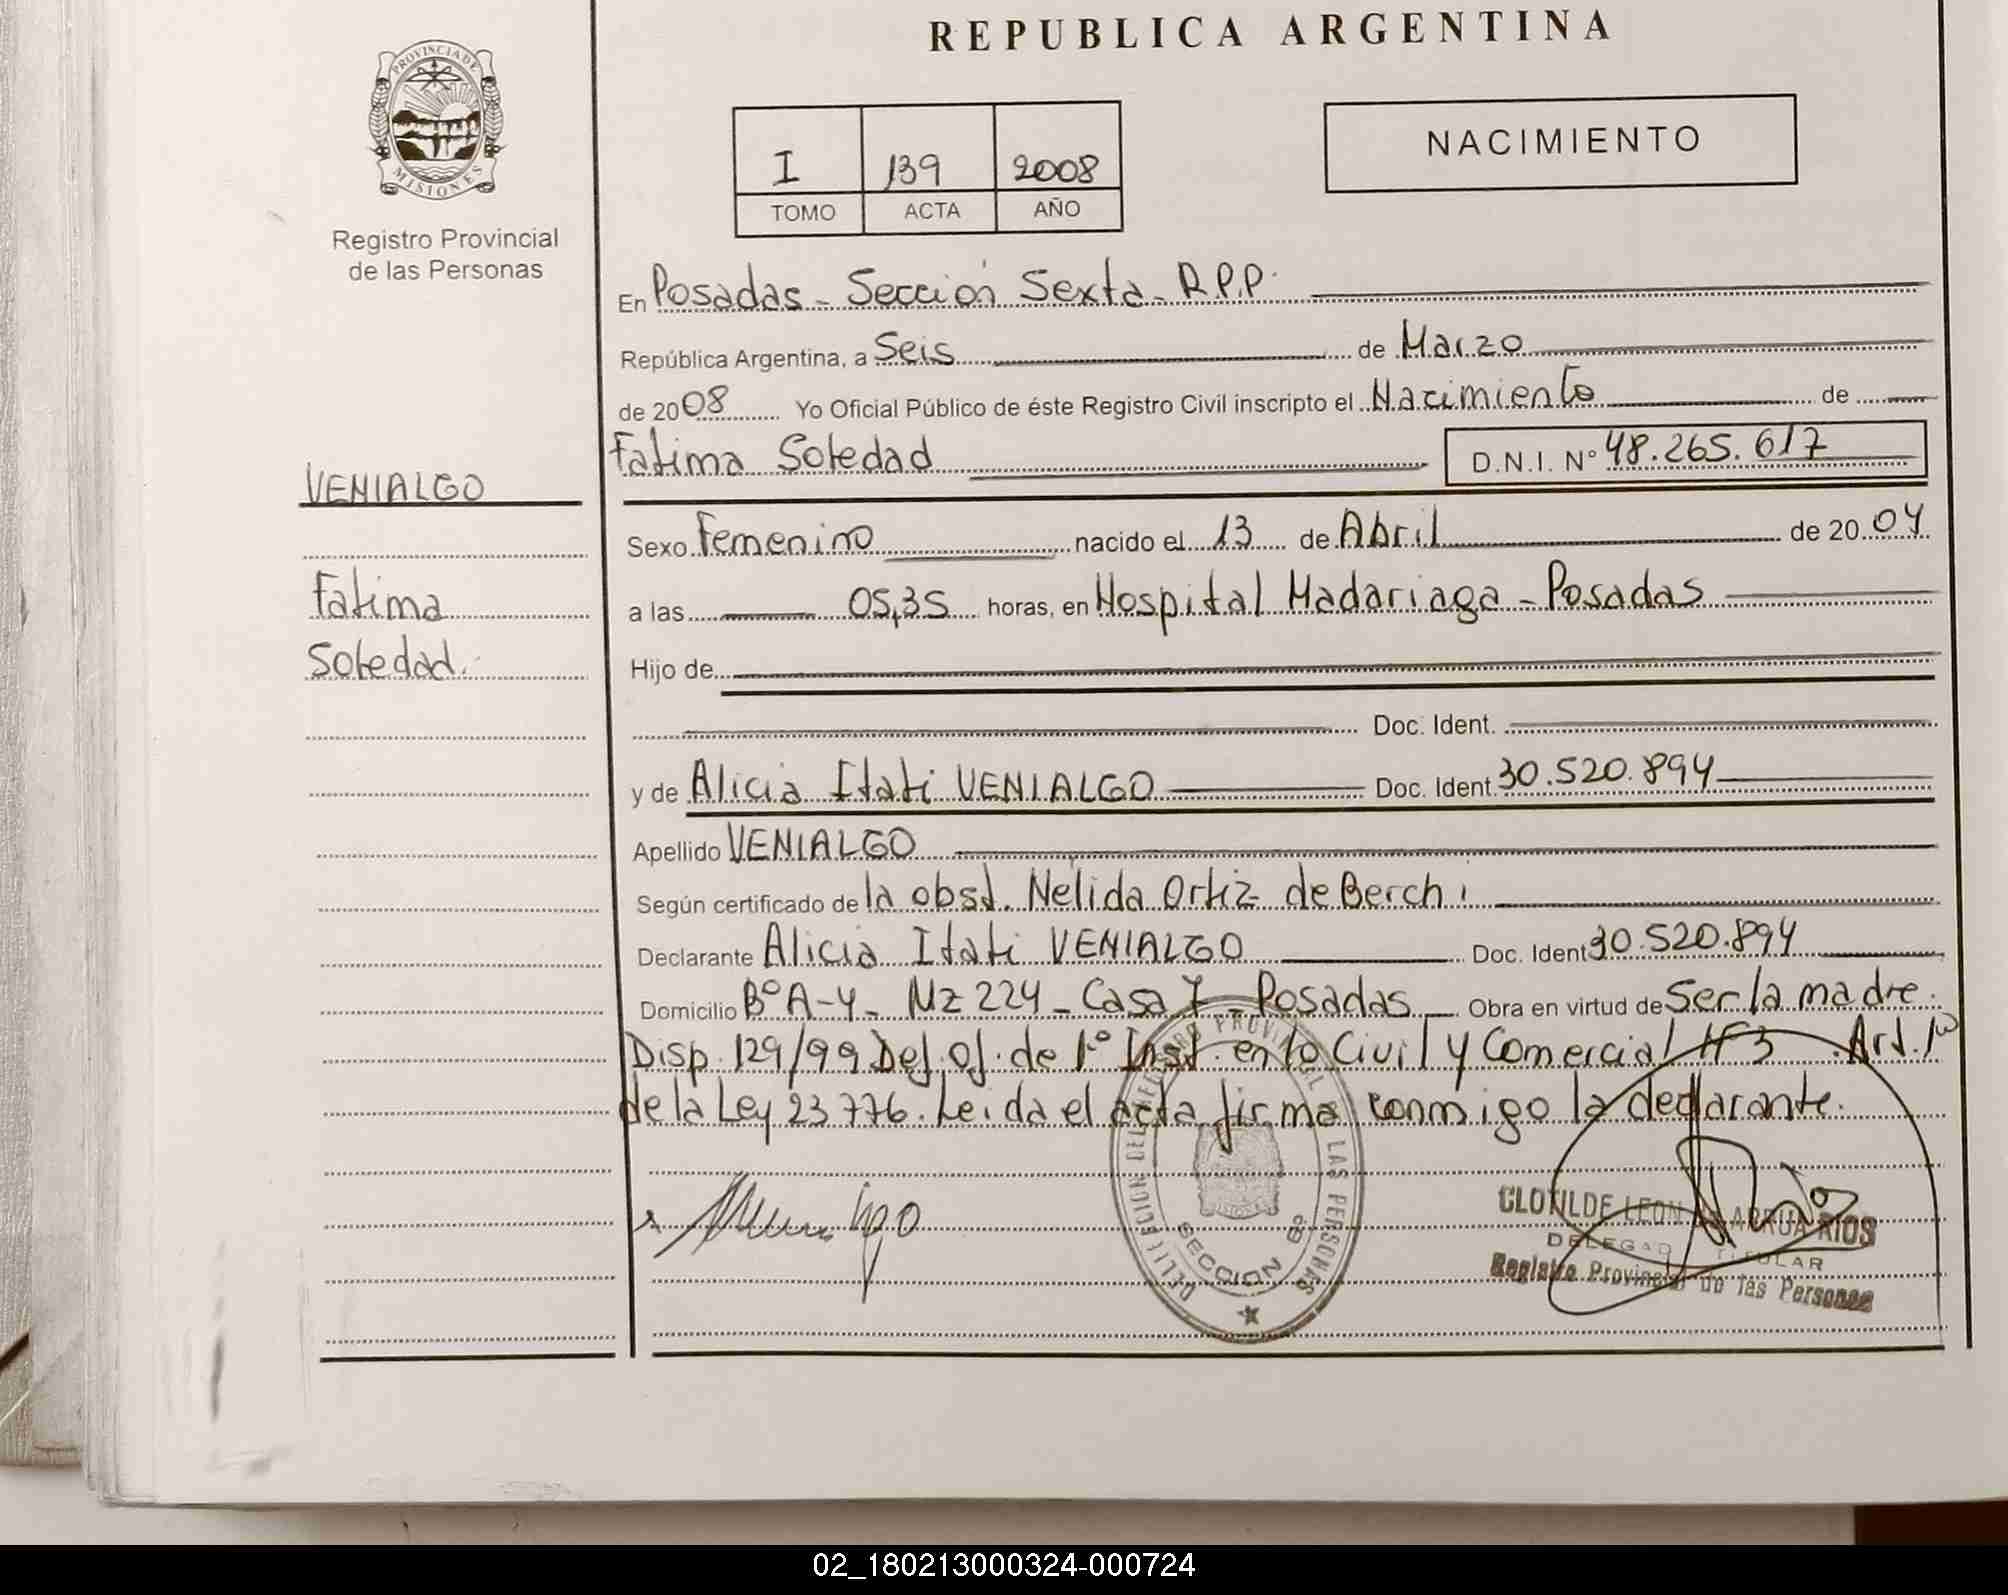 REPUBLICA ARGENTINA
PROVINCIA DE
MISIONES
Registro Provincial
de las Personas
I 139 2008
TOMO ACTA AÑO
NACIMIENTO
En Posadas - Sección Sexta - R.P.P.
República Argentina, a Seis de Marzo
de 2008 Yo Oficial Público de éste Registro Civil inscripto el Nacimiento de
Fatima Soledad D.N.I. Nº 48.265.617
VENIALGO
Fatima
Soledad.
Sexo Femenino nacido el 13 de Abril de 2004
a las 05,35 horas, en Hospital Madariaga - Posadas
Hijo de
Doc. Ident.
y de Alicia Itati VENIALGO Doc. Ident 30.520.894
Apellido VENIALGO
Según certificado de la obst. Nélida Ortiz de Berchi
Declarante Alicia Itati VENIALGO Doc. Ident 30.520.894
Domicilio Bº A-4 - Mz 224 - Casa 7 - Posadas Obra en virtud de Ser la madre.
Disp. 129/99 Def. Of. de 1º Inst. en lo Civil y Comercial Nº 3. Art. 1º
de la Ley 23.776. Leida el acta firma conmigo la declarante.
REGISTRO PROVINCIAL DE LAS PERSONAS
SECCION 6º
CLOTILDE LEON DE ARRUA RIOS
DELEGADO TITULAR
Registro Provincial de las Personas
02_180213000324-000724